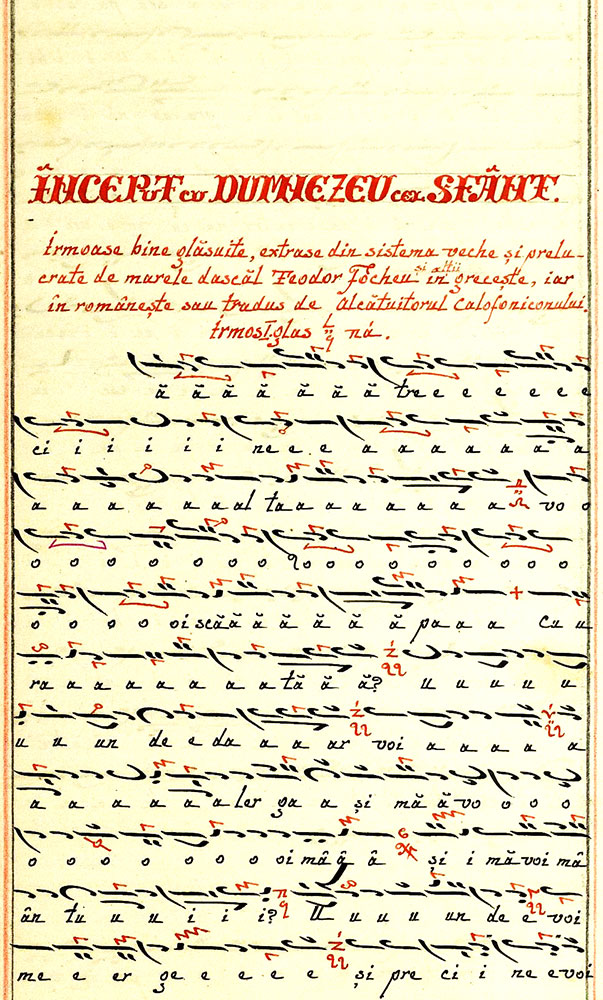 ÎNCEPUT CU DUMNEZEU CEL SFÂNT.
Irmoase bine glăsuite, extrase din sistema veche și prelu-
crate de marele dascăl Teodor Focheu și alții în grecește, iar
în românește sau tradus de Alcătuitorul Calofoniconului.
Irmos I, glas na.
ă ă ă ă ă ă ă tre e e e e e e
ci i i i i i i ne e e a a a a a a a
a a a a a a al ta a a a a a a a a vo o
o o o o o o o o o o o o o o o o o
o o o o oi scă ă ă ă ă ă ă ă pa a a cu u
ra a a a a a a a a tă ă ă? U u u u u
u u un de e da a a ar voi a a a a a
a a a a a a ler ga a și mă ă vo o o o
o o o o o o o o o oi mâ â â și i mă voi mâ
ân tu u u i i i? U u u u un de e voi
me e er ge e e e e și pre ci i ne e voi